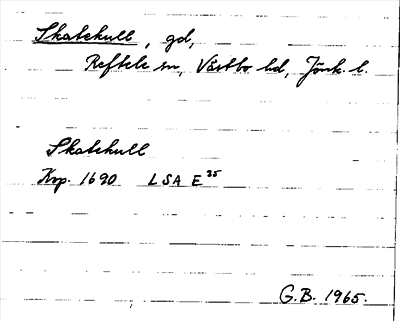 Skatekull, gd,
Reftele sn, Västbo hd, Jönk. l.
Skatekull
Kop. 1690 LSA E 35
G.B. 1965.